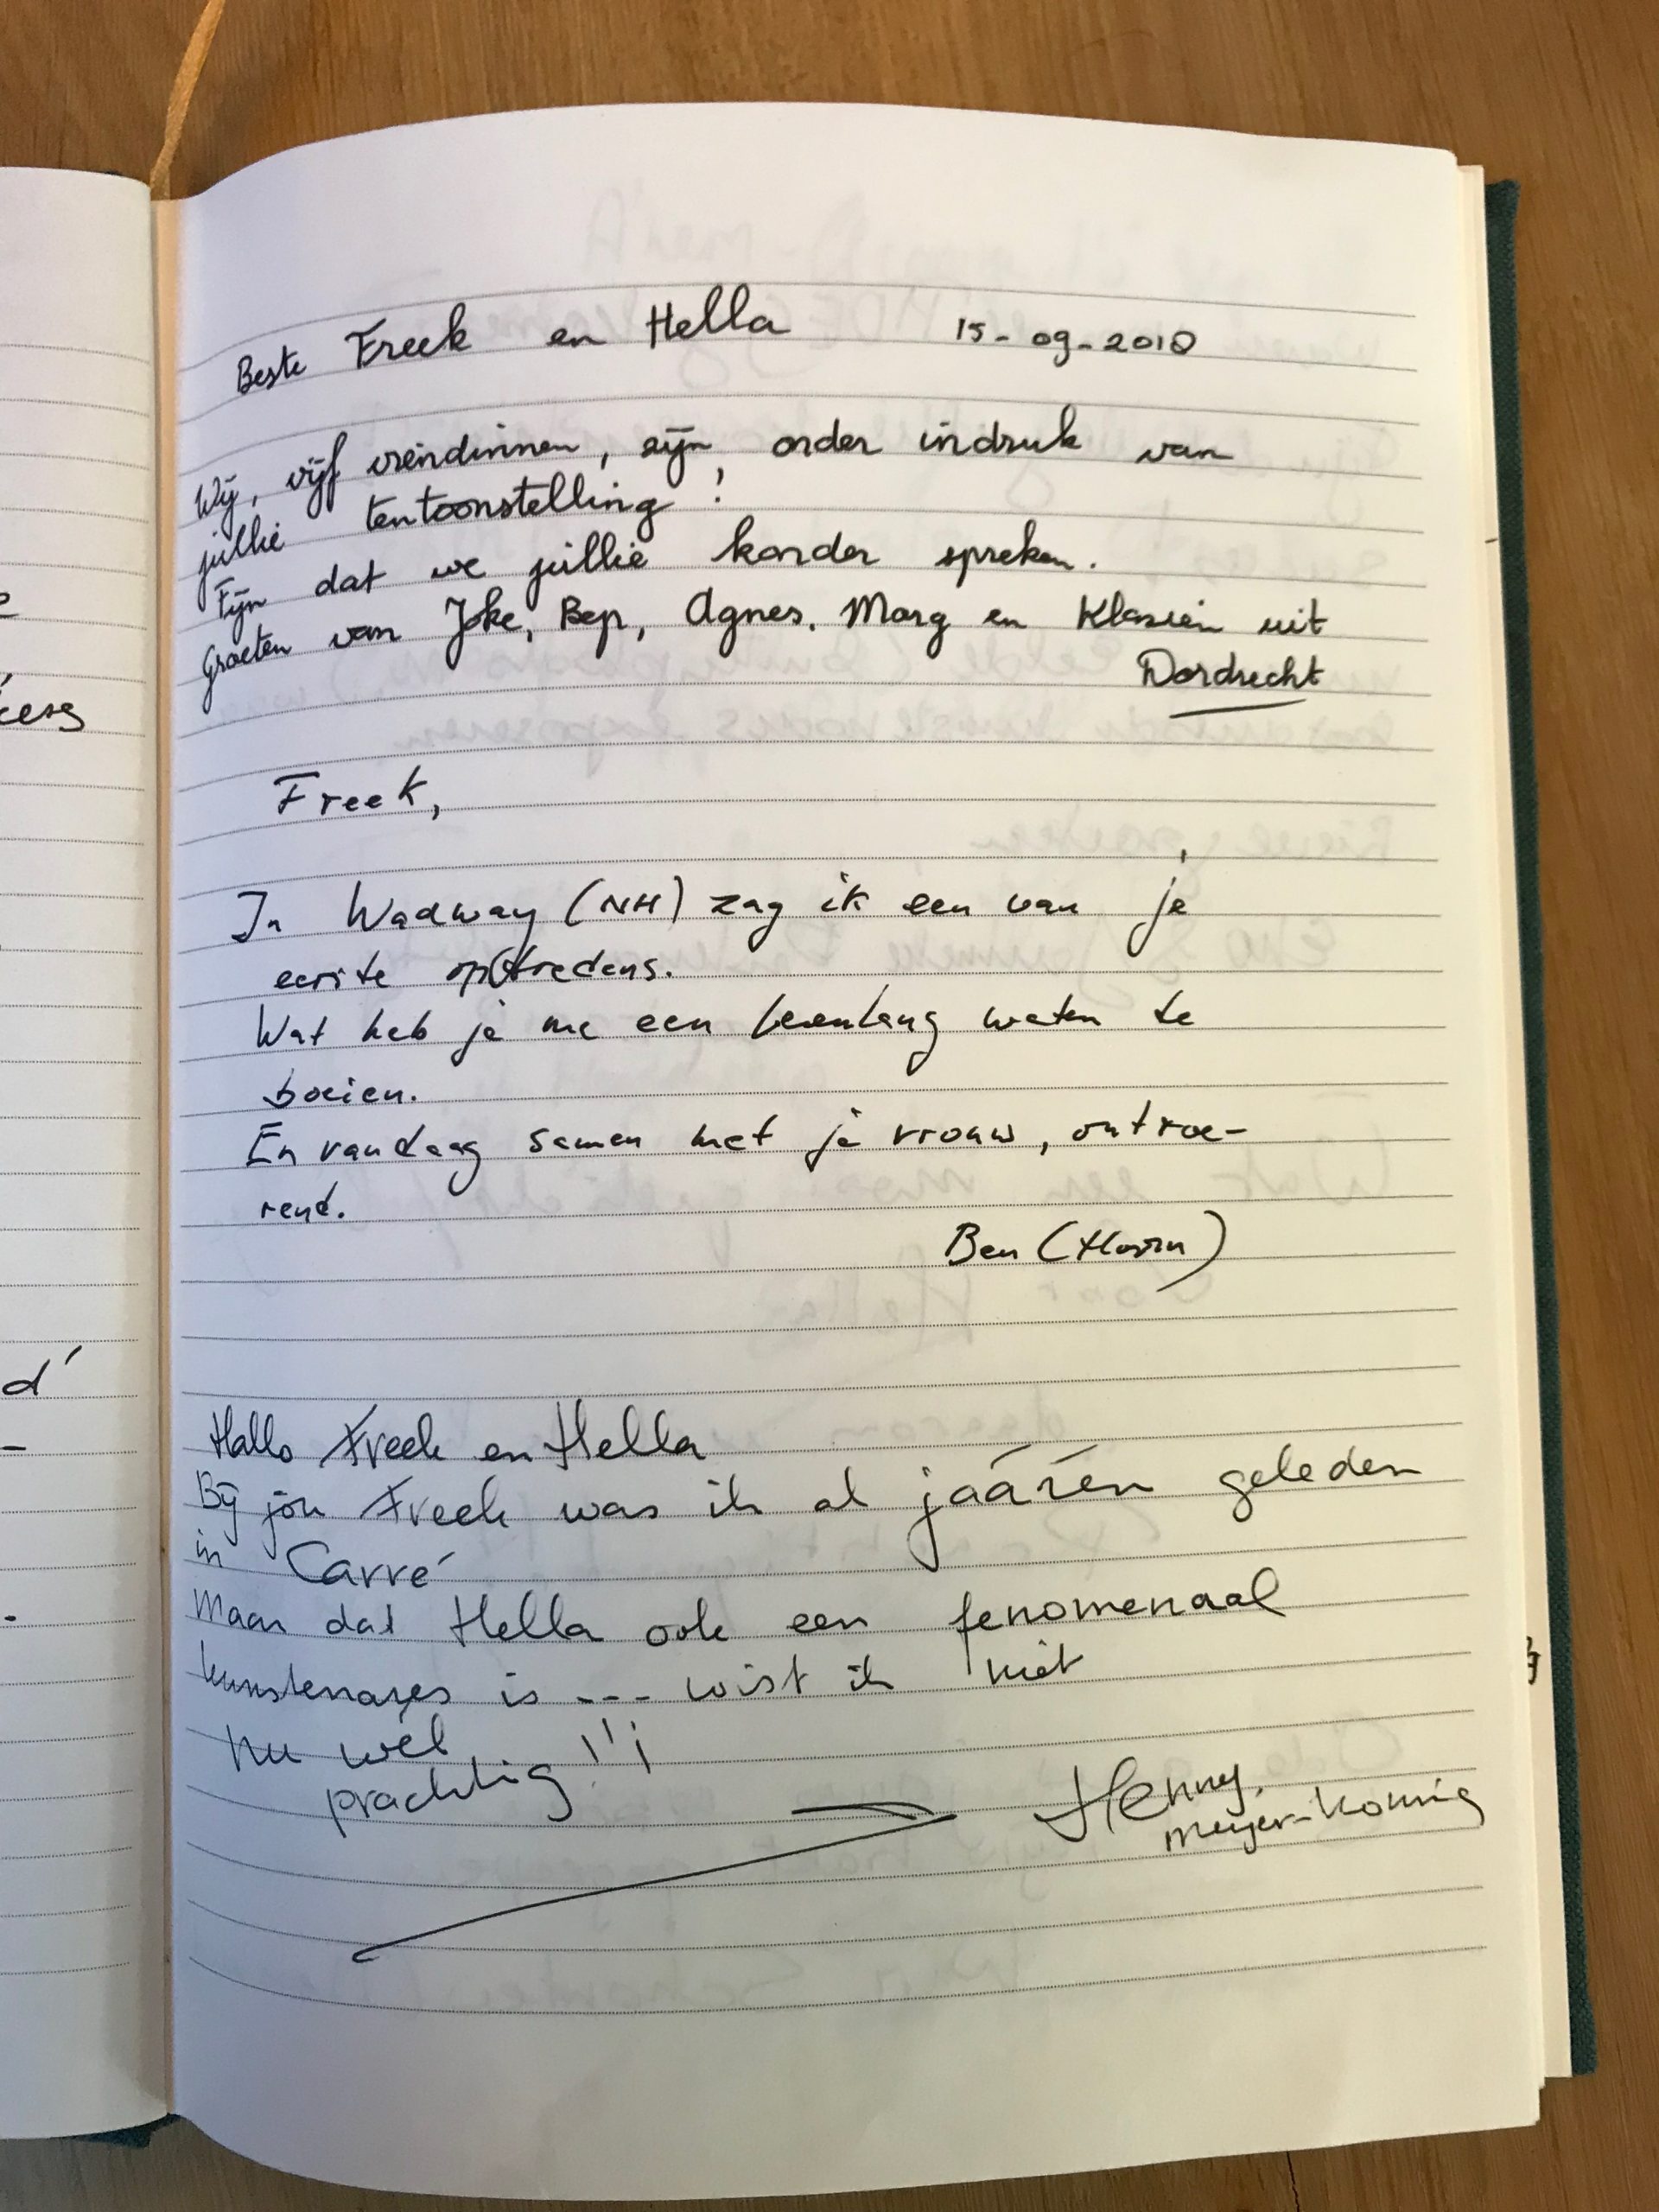 Beste Freek en Hella 15-09-2018
Wij, vijf vriendinnen, zijn onder indruk van
jullie tentoonstelling!
Fijn dat we jullie konden spreken.
Groeten van Joke, Bep, Agnes, Marg en Klasien uit
Dordrecht
Freek,
In Wadway (NH) zag ik een van je
eerste optredens.
Wat heb je me een levenlang weten te
boeien.
En vandaag samen met je vrouw, ontroe-
rend.
Ben (Hoorn)
Hallo Freek en Hella
Bij jou Freek was ik al jááren geleden
in Carré
Maar dat Hella ook een fenomenaal
kunstenares is --- wist ik niet
Nu wél
prachtig!!!
Henny
Meijer-Koning